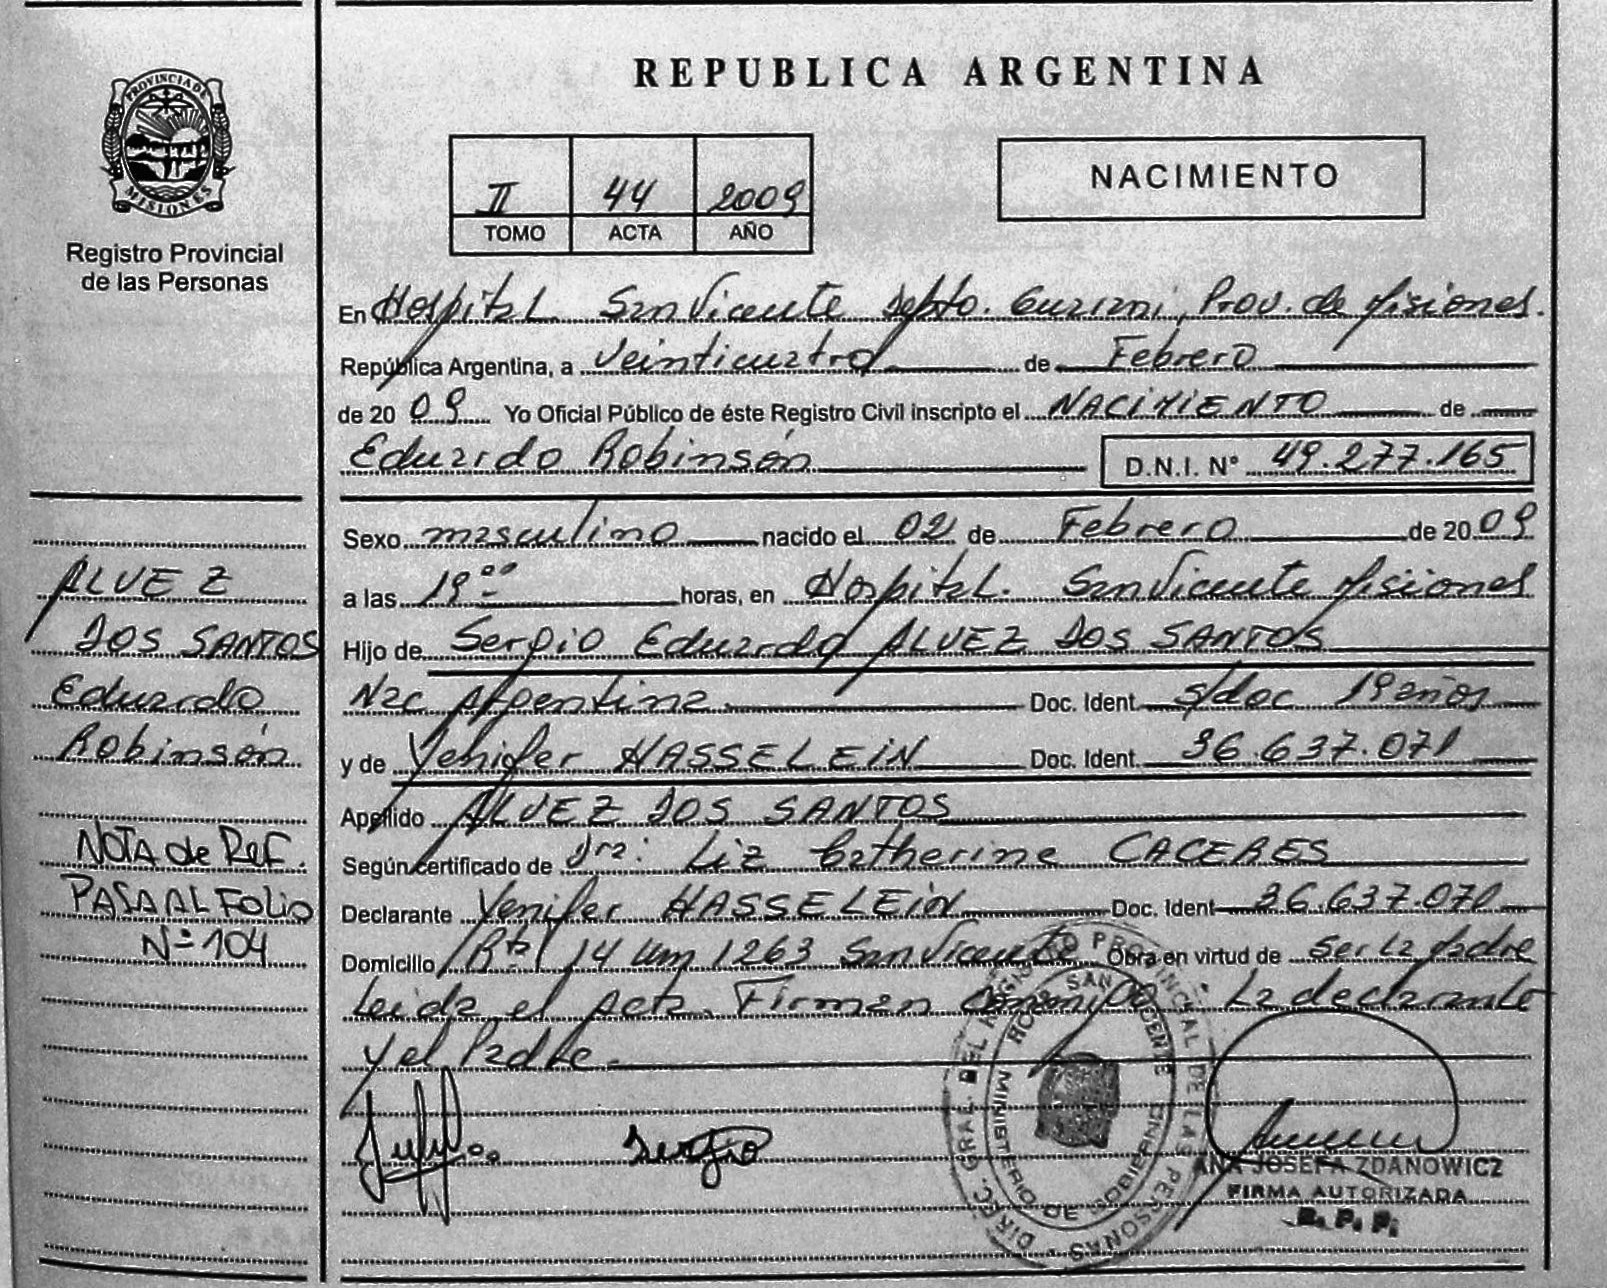 PROVINCIA DE
MISIONES
Registro Provincial
de las Personas
REPUBLICA ARGENTINA
II 44 2009
TOMO ACTA AÑO
NACIMIENTO
En Hospital San Vicente Dpto. Guarani, Prov. de Misiones.
República Argentina, a veinticuatro de Febrero
de 2009 Yo Oficial Público de éste Registro Civil inscripto el NACIMIENTO de
Eduardo Robinsón D.N.I. Nº 49.277.165
Sexo masculino nacido el 02 de Febrero de 2009
a las 19:00 horas, en Hospital San Vicente Misiones
Hijo de Sergio Eduardo ALVEZ DOS SANTOS
Nac Argentina Doc. Ident. s/doc 19 años
y de Yenifer HASSELEIN Doc. Ident. 36.637.071
Apellido ALVEZ DOS SANTOS
Según certificado de Dra: Liz Catherine CACERES
Declarante Yenifer HASSELEIN Doc. Ident 36.637.071
Domicilio Rta 14 Km 1263 San Vicente Obra en virtud de Ser la Madre
Leida el Acta. Firman Conmigo. La declarante
y el Padre.
Sergio
DIREC. GRAL. DEL REGISTRO PROVINCIAL DE LAS PERSONAS
HOSP. SAN VICENTE
MINISTERIO DE GOBIERNO
ANA JOSEFA ZDANOWICZ
FIRMA AUTORIZADA
R. P. P.
ALVEZ
DOS SANTOS
Eduardo
Robinsón
NOTA de Ref.
PASA AL FOLIO
Nº 104